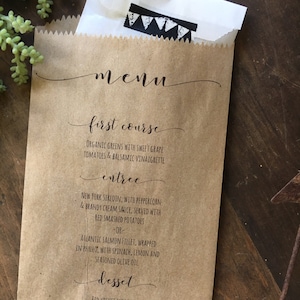 menu
first course
ORGANIC GREENS WITH SWEET GRAPE
TOMATOES & BALSAMIC VINAIGRETTE
entree
NEW YORK SIRLOIN, WITH PEPPERCORN
& BRANDY CREAM SAUCE, SERVED WITH
RED SMASHED POTATOES
-OR-
ATLANTIC SALMON FILET, WRAPPED
IN WITH SPINACH, LEMON AND
SEASONED OLIVE OIL
dessert